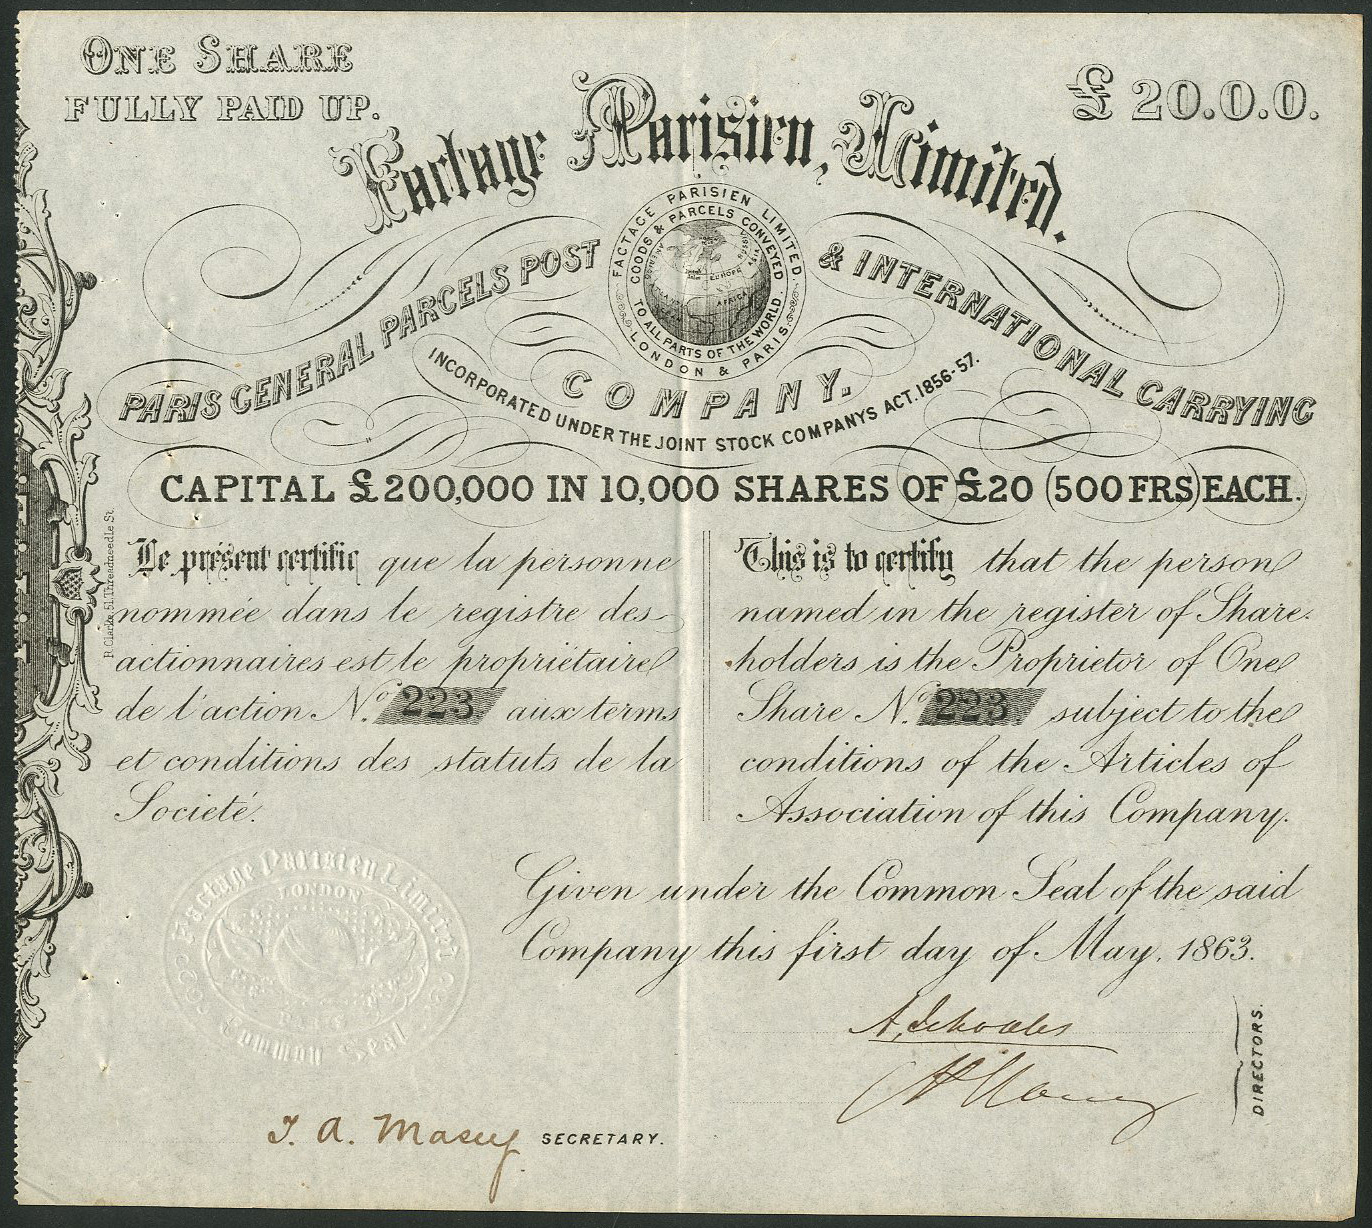 ONE SHARE
FULLY PAID UP.
£ 20.0.0.
Factage Parisien, Limited.
FACTAGE PARISIEN LIMITED
GOODS & PARCELS CONVEYED
TO ALL PARTS OF THE WORLD.
LONDON & PARIS.
EUROPE
AFRICA
PARIS GENERAL PARCELS POST & INTERNATIONAL CARRYING
COMPANY.
INCORPORATED UNDER THE JOINT STOCK COMPANYS ACT. 1856-57.
CAPITAL £200,000 IN 10,000 SHARES OF £20 (500 FRS) EACH.
Le présent certific que la personne
nommée dans le registre des
actionnaires est le propriétaire
de l'action No. 223 aux terms
et conditions des statuts de la
Societé.
This is to certify that the person
named in the register of Share-
holders is the Proprietor of One
Share No. 223 subject to the
conditions of the Articles of
Association of this Company.
Given under the Common Seal of the said
Company this first day of May, 1863.
Factage Parisien Limited
LONDON
PARIS
Common Seal
DIRECTORS.
T. A. Masey SECRETARY.
R. Clarke, 51, Threadneedle St.